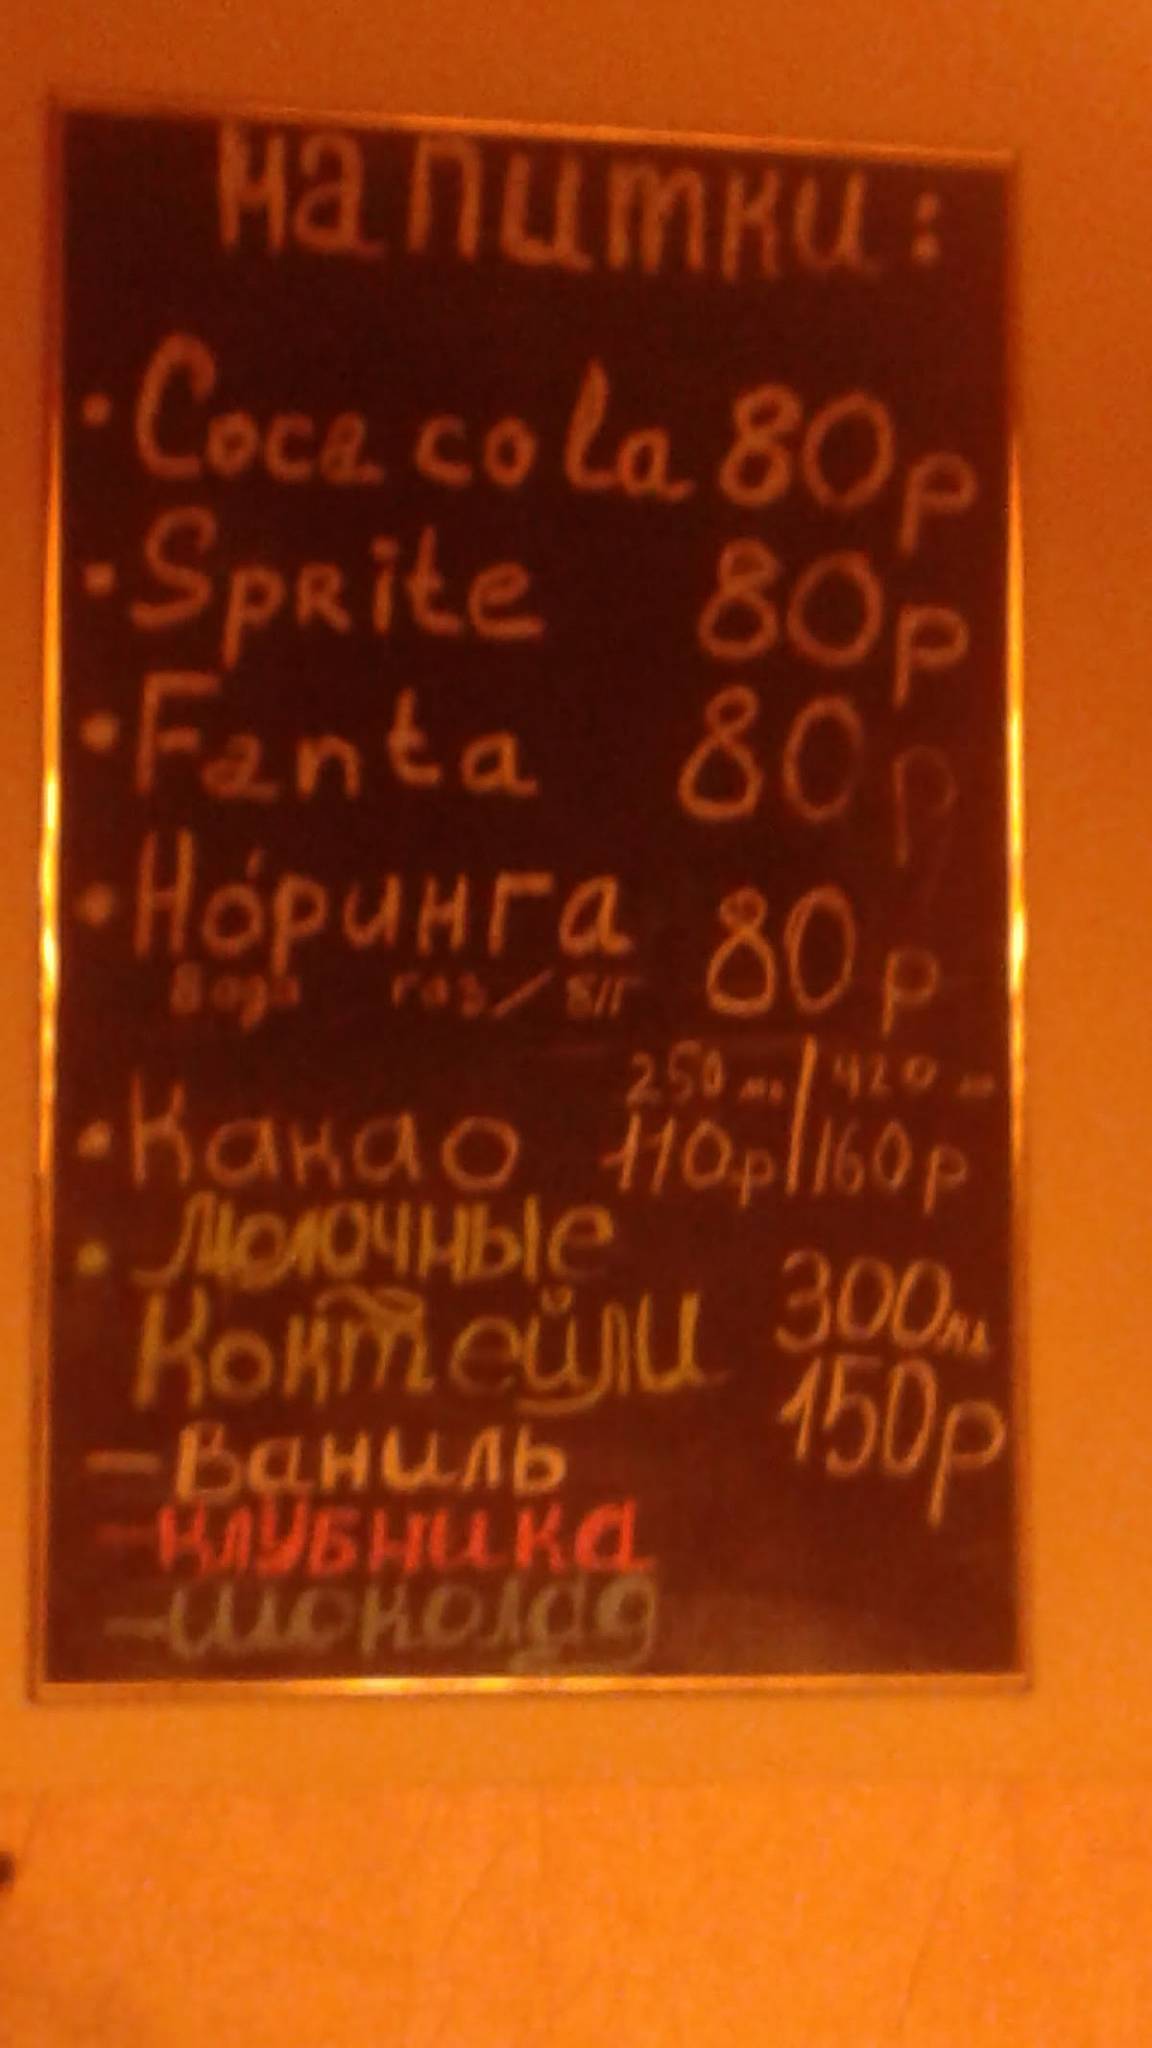 напитки:
• Coca cola 80р
• Sprite 80р
• Fanta 80р
• Но́ринга 80р
вода газ/ б/г
250 мл/420 мл
• Какао 110р/160р
• Молочные
Коктейли 300мл
150р
- Ваниль
- клубника
- шоколад